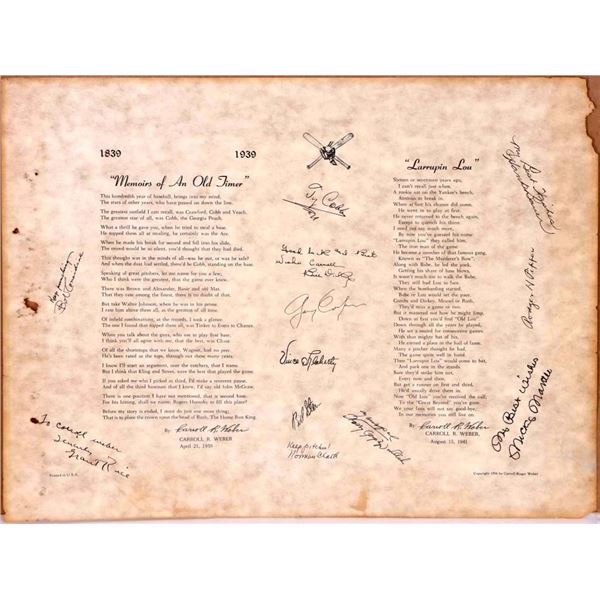 1839 1939
"Memoirs of An Old Timer"
This hundredth year of baseball, brings into my mind,
The stars of other years, who have passed on down the line.
The greatest outfield I can recall, was Crawford, Cobb and Veach.
The greatest star of all, was Cobb, the Georgia Peach.
What a thrill he gave you, when he tried to steal a base.
He topped them all at stealing, he certainly was the Ace.
When he made his break for second and fell into his slide,
The crowd would be so silent, you'd thought that they had died.
This thought was in the minds of all—was he out, or was he safe?
And when the dust had settled, there'd be Cobb, standing on the base.
Speaking of great pitchers, let me name for you a few,
Who I think were the greatest, that the game ever knew.
There was Brown and Alexander, Rusie and old Mat.
That they rate among the finest, there is no doubt of that.
But take Walter Johnson, when he was in his prime,
I rate him above them all, as the greatest of all time.
Of infield combinations, at the records, I took a glance.
The one I found that topped them all, was Tinker to Evers to Chance.
When you talk about the guys, who use to play first base,
I think you'll all agree with me, that the best, was Chase
Of all the shortstops the game has known, Wagner, had no peer.
He's been rated at the tops, through out these many years.
I know I'll start an argument, over the catchers, that I name
But I think that Kling and Street, were the best that played the game.
If you asked me who I picked at third, I'd make a repentent pause.
And of all the third basemen that I knew, I'd say old John McGraw.
There is one position I have not mentioned, that is second base,
For his hitting, shall we name, Rogers Hornsby to fill this place?
Before my story is ended, I must do just one thing more,
That is place the crown upon the head of Ruth, The Home Run King.
By Carroll R. Weber
CARROLL R. WEBER
April 21, 1939
Printed in U.S.A.
To Carroll Weber
Sincerely
Grant Rice
Ty Cobb
Gary Cooper
Vince Flaherty
Keep pitchin'
Norman Clark
"Larrupin Lou"
Sixteen or seventeen years ago,
I can't recall just when.
A rookie sat on the Yankee's bench,
Anxious to break in.
When at last his chance did come,
He went in to play at first.
He never returned to the bench again,
Except to quench his thirst.
I need not say much more,
Now you've guessed his name
"Larrupin Lou" they called him,
The iron man of the game.
He became a member of that famous gang,
Known as "The Murderer's Row".
Along with Babe, he led the parade,
Getting his share of blow.
It wasn't until the Babe retired,
They still had Lou to face.
When the bombarding started,
Babe or Lou would set the pace.
Gomby and Dickey, Missed or Ruth,
They'd miss a game or two.
But it mattered not how he might limp,
Down at first you'd find "Old Lou"
Down through all the years he played,
He set a record for consecutive games
With that mighty bat of his,
He earned a place in the hall of fame.
Many a pitcher thought he had
The game spent well in hand
Then "Larrupin Lou" would come to bat,
And park one in the stands
Now they'd strike him out,
Every now and then.
But get a runner on first and third,
He'd usually drive them in.
Now "Old Lou" you've received the call,
To the "Great Beyond" you've gone.
We your fans will not say good-bye,
In our memories you still live on
By Carroll R. Weber
CARROLL R. WEBER
August 15, 1941
My Best Wishes
Copyright 1956 by Carroll Roger Weber